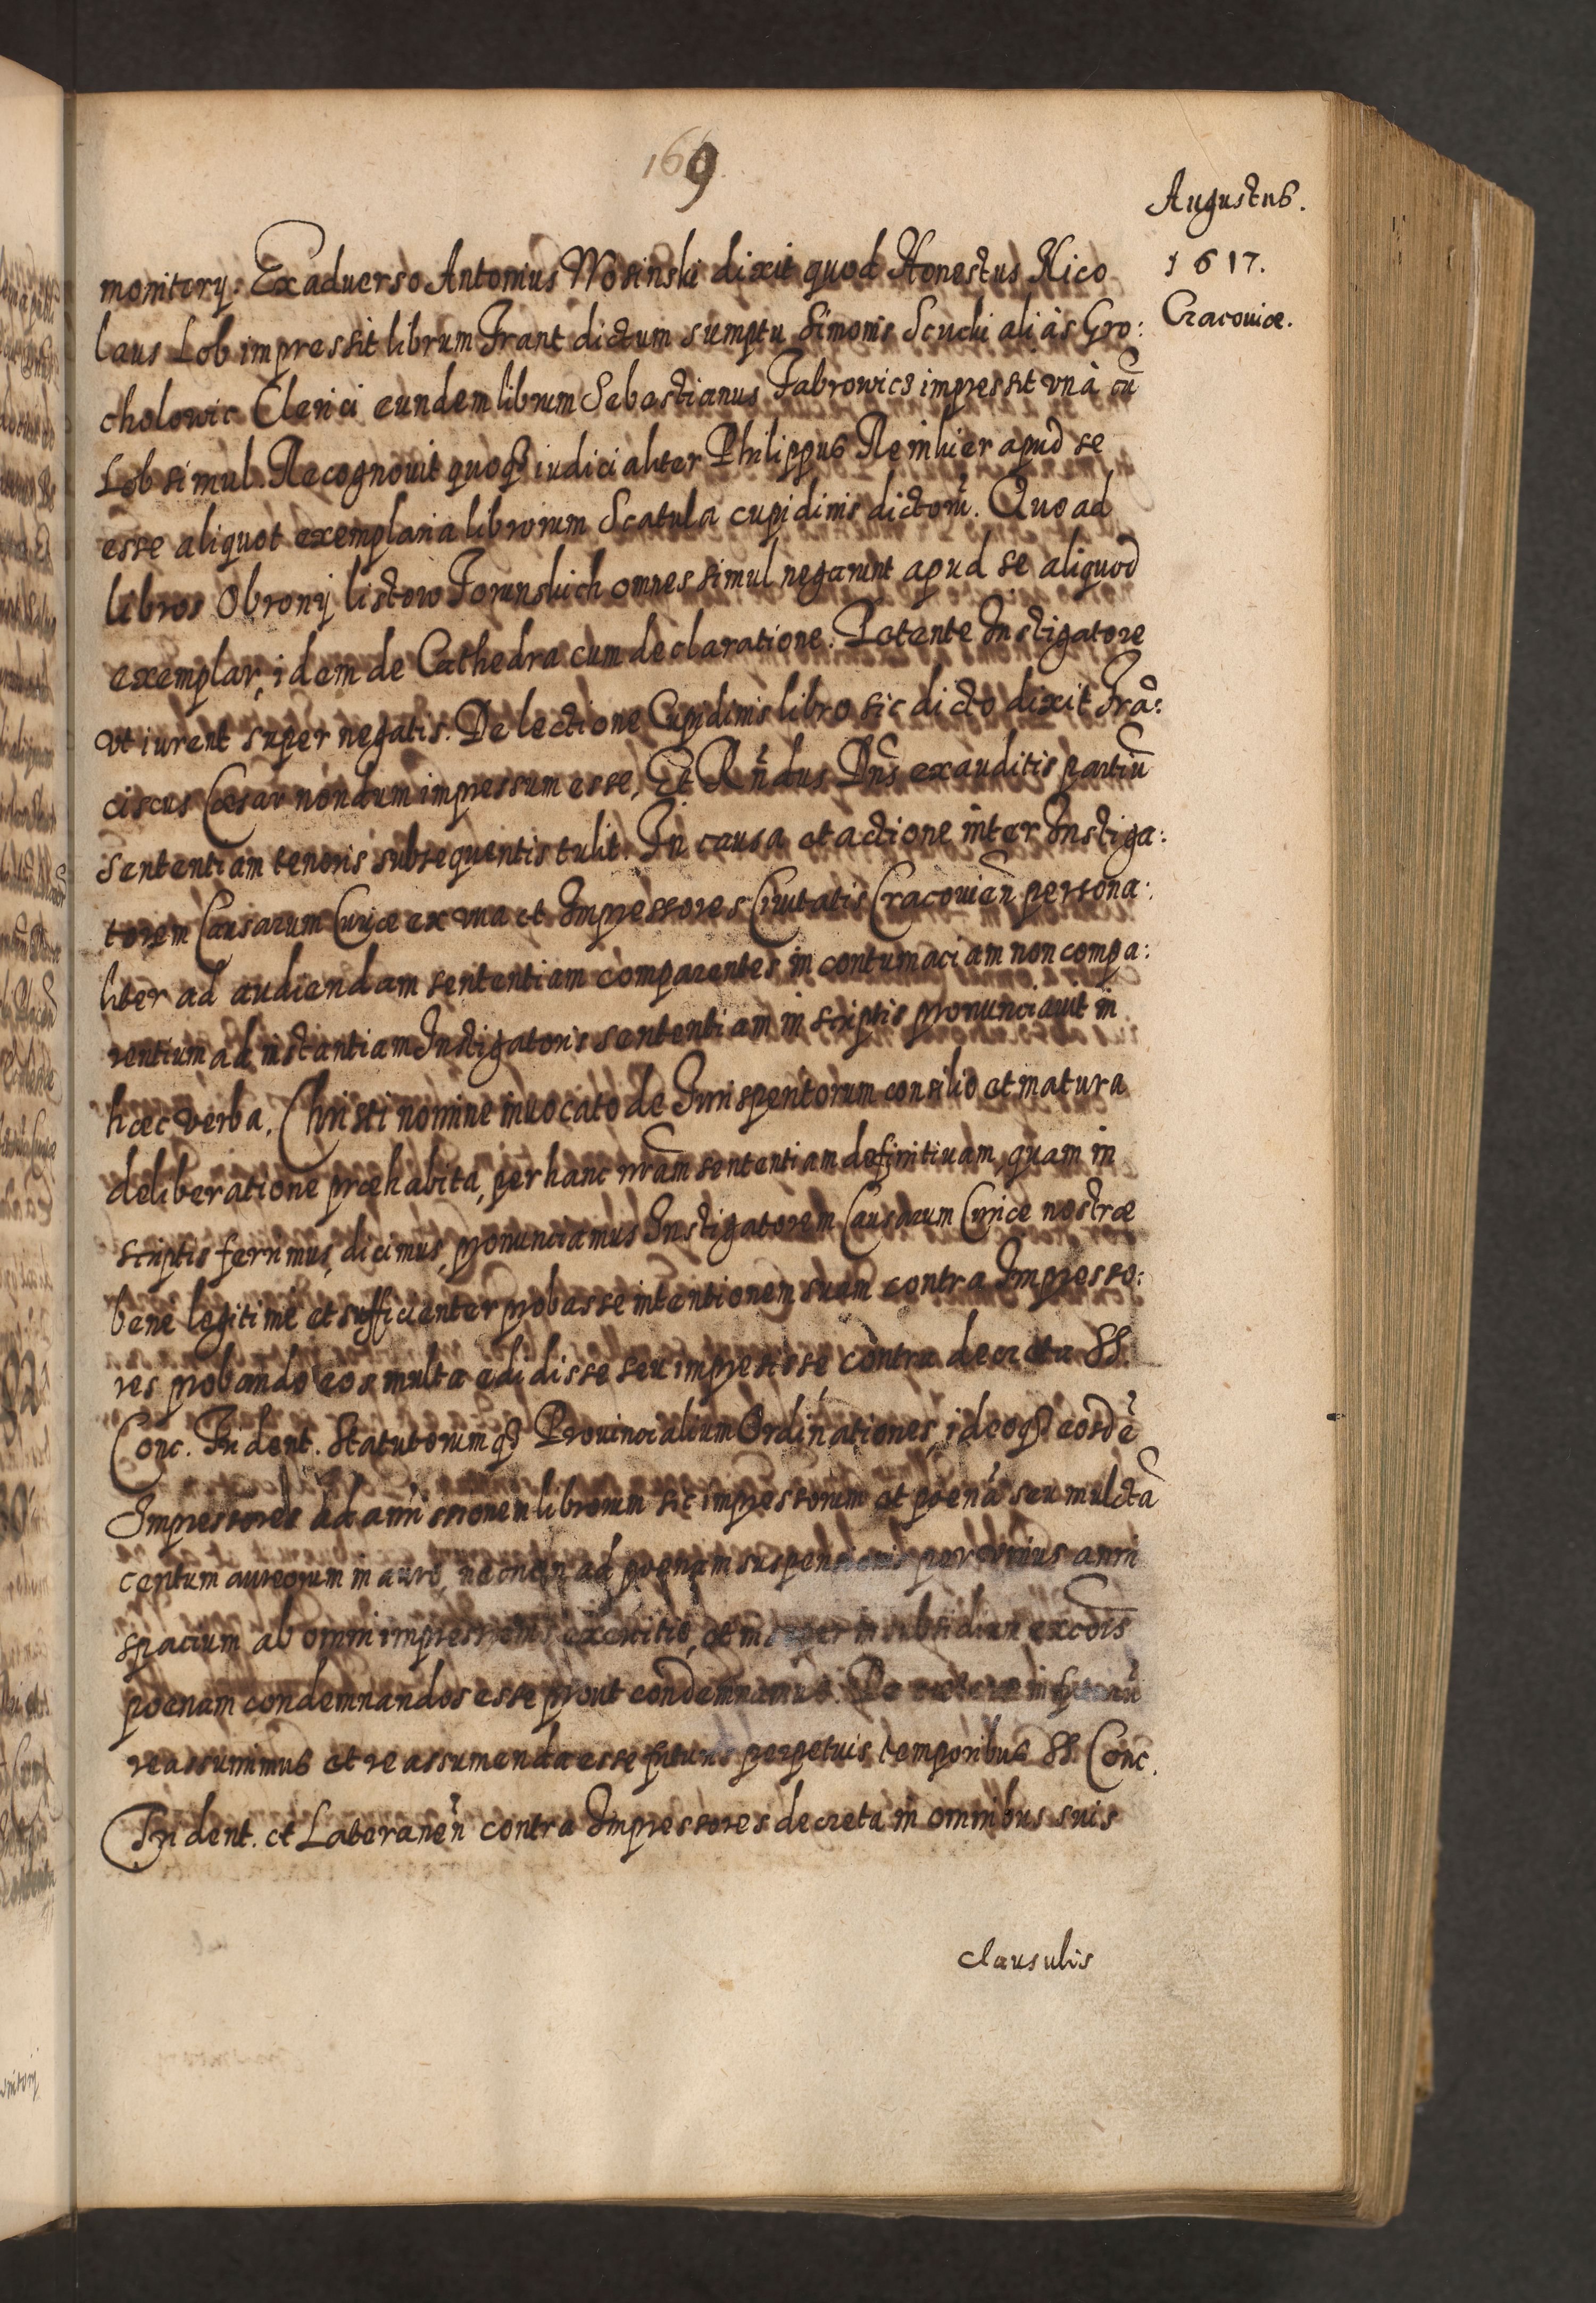 169
Augustus.
1617.
Cracouiæ.
monitorij. Ex aduerso Antonius Wosinski dixit quod Honestus Nico
laus Lob impressit librum Frant dictum sumptu Simonis Scucki aliàs Gro:
cholowic Clerici eundem librum Sebastianus Fabrowicz impressit vnà cū
Lob simul. Recognouit quoq iudicialiter Philippus Reinhier apud se
esse aliquot exemplaria librorum Scatula cupidinis dictorū. Quo ad
libros Obrony listow Torunskich omnes simul negarunt apud se aliquod
exemplar, idem de Cathedra cum declaratione. Petente Instigatore
vt iurent super negatis. De lectione Cupidinis libro sic dicto dixit Frā:
ciscus Cæsar nondum impressum esse. Et Rn̄dus Dn̄s exauditis partiū
sententiam tenoris subsequentis tulit. In causa et actione inter Instiga:
torem Causarum Curiæ ex vna et Impressores Ciuitatis Cracouien̄ persona:
liter ad audiendam sententiam comparentes in contumaciam non compa:
rentium ad instantiam Instigatoris sententiam in scriptis pronunciauit in
hæc verba. Christi nomine inuocato de Iurisperitorum consilio et matura
deliberatione præhabita, per hanc nr̄am sententiam definitiuam, quam in
scriptis ferimus, dicimus, pronunciamus Instigatorem Causarum Curiæ nostræ
bene legitimè et sufficienter probasse intentionem suam contra Impresso:
res probando eos multa edidisse seu impressisse contra decreta SS.
Conc. Trident. Statutorumq Prouincialium Ordinationes, ideoq eosdē
Impressores ad amissionem librorum sic impressorum et poenā seu mulctā
centum aureorum in auro, necnon ad poenam suspensionis per vnius anni
spacium ab omni impressionis exercitio, et in subsidium excōis
poenam condemnandos esse prout condemnamus. De in futurū
reassumimus et reassumenda esse futuris perpetuis temporibus SS. Conc.
Trident. et Lateranen̄ contra Impressores decreta in omnibus suis
clausulis